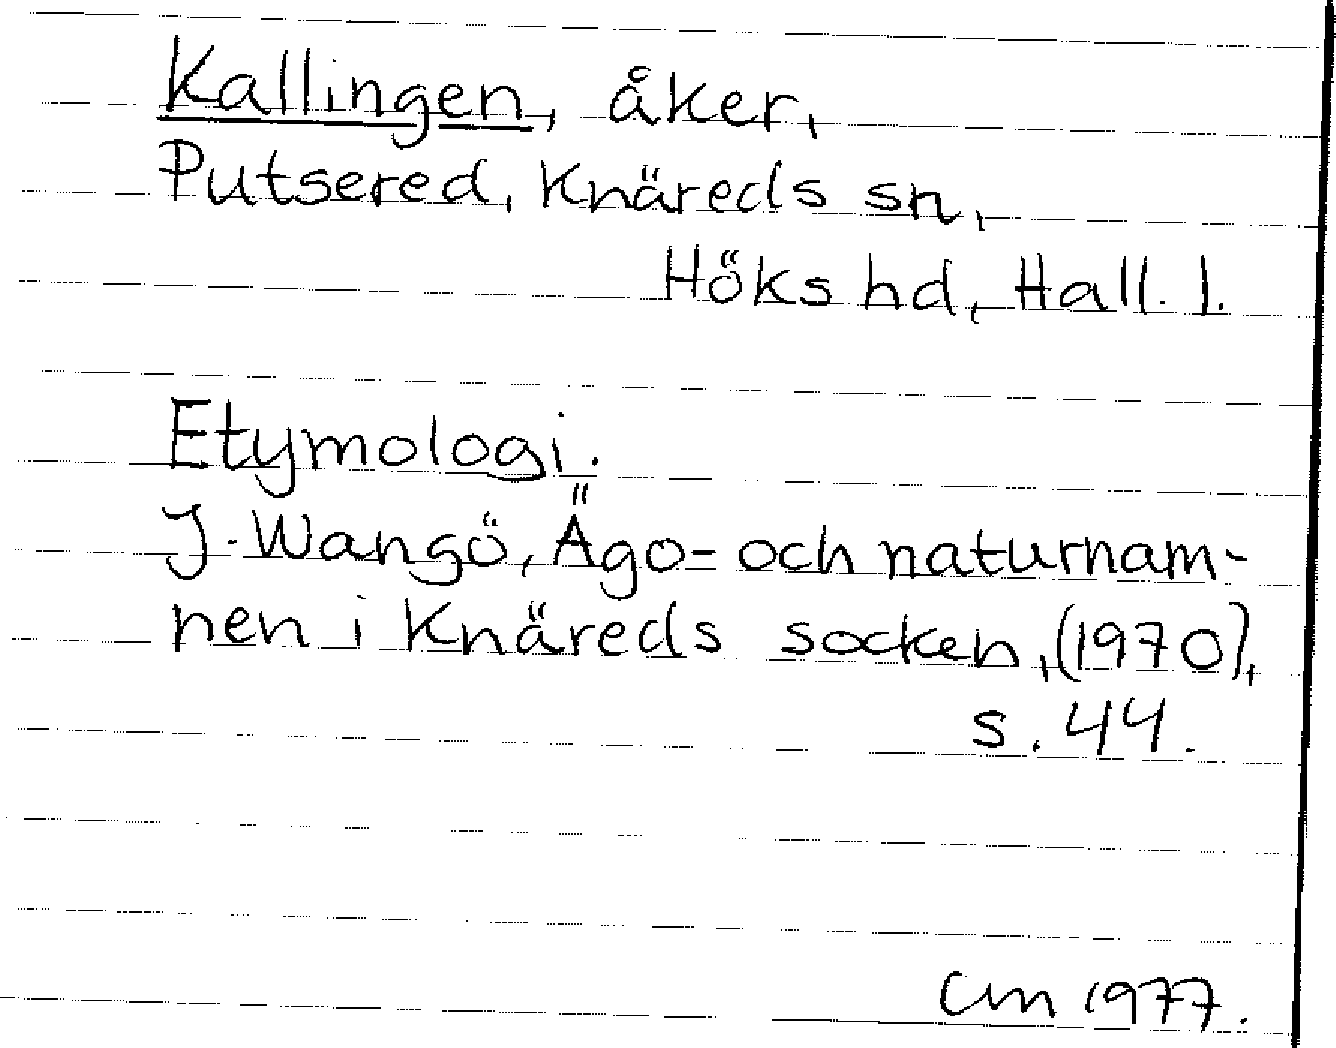 Kallingen, åker,
Putsered, Knäreds sn,
Höks hd, Hall. l.
Etymologi.
J. Wangö, Ägo- och naturnam-
nen i Knäreds socken, (1970),
s. 44.
CM 1977.